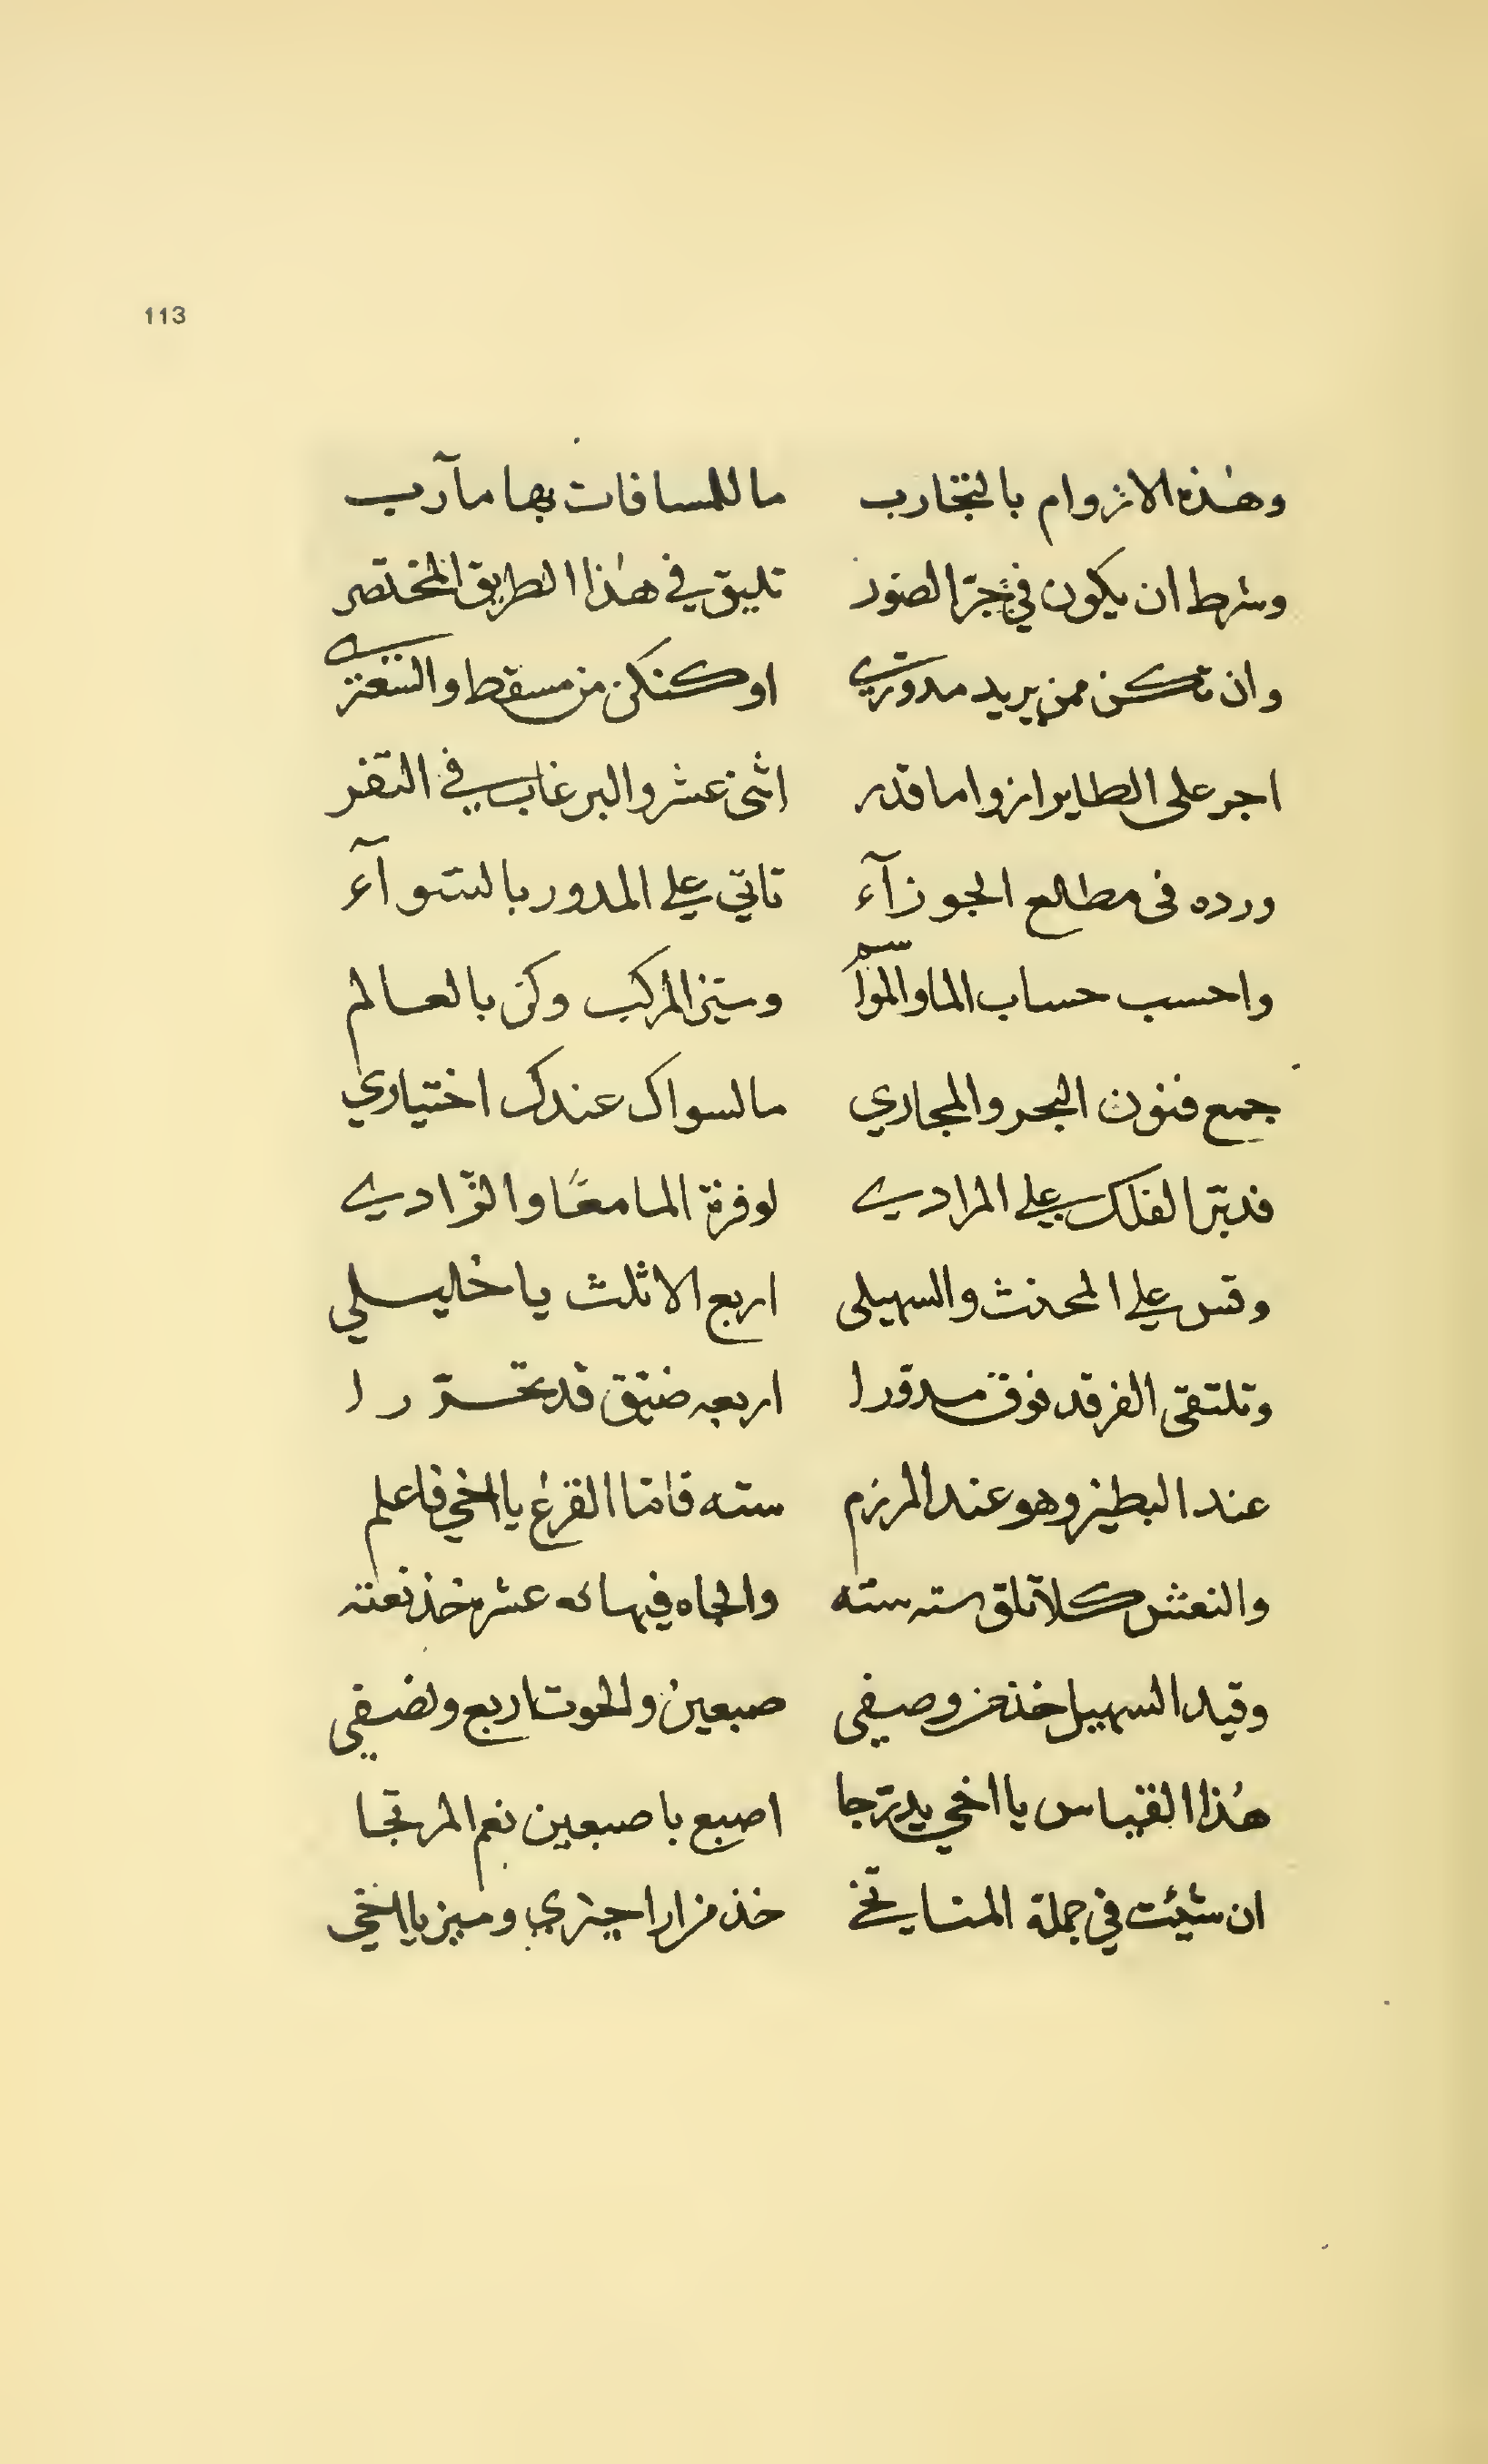 113
وهذه الازوام بالتجارب ما للمسافات بها مآرب
وشرط ان يكون في جر الصور تليق في هذا الطريق المختصر
وان تكن ممن يريد مدورتي او كنكن من مسقط والشعتري
اجر على الطاير ازواما قدر اثنى عشر والبر غاب في النفر
ورده في مطالع الجوزآء تاتي علي المدور بالسوآء
واحسب حساب الما والمواسم وسيّر المركب وكن بالعالم
جمع فنون البحر والمجاري ما لسواك عندك اختياري
فدبّر الفلك علي المرادي لوفرة الما معًا والزّادي
وقس علي المحنث والسهيلي اربع الا ثلث يا خليلي
وتلتقي الفرقد فوق مدورا اربعه ضيق قد تحررا
عند البطين وهو عند المرزم سته فامّا الفرغ يا اخي فاعلم
والنعش كلا تلق سته سته والجاه فيها عشر خذ نعته
وقيد السهيل خذ عن وصفي صبعين والحوت اربع ونصفي
هذا القياس يا اخي يدرجا اصبع باصبعين نعم المرتجا
ان شئت في جملة المنايخ خذ من ومين يا اخي